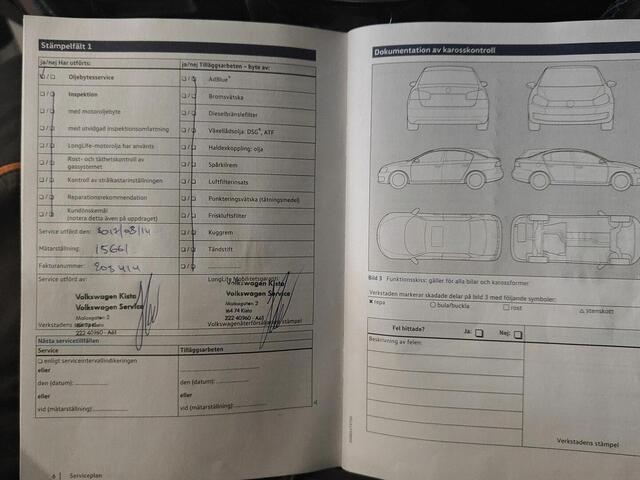 Stämpelfält 1
ja/nej Har utförts:
ja/nej Tilläggsarbeten – byte av:
Oljebytesservice
AdBlue®
Inspektion
Bromsvätska
med motoroljebyte
Dieselbränslefilter
med utvidgad inspektionsomfattning
Växellådsolja: DSG®, ATF
LongLife-motorolja har använts
Haldexkoppling: olja
Rost- och täthetskontroll av
gassystemet
Spårkilrem
Kontroll av strålkastarinställningen
Luftfilterinsats
Reparationsrekommendation
Punkteringsvätska (tätningsmedel)
Kundönskemål
(notera detta även på uppdraget)
Friskluftsfilter
Service utförd den: 2017/08/14
Kuggrem
Mätarställning: 15661
Tändstift
Fakturanummer:
Service utförd av:
LongLife Mobilitetsgaranti
Volkswagen Kista
Volkswagen Service
Malaxgatan 2
164 74 Kista
222 40960 - A61
Verkstadens
Volkswagen Kista
Volkswagen Service
Malaxgatan 2
164 74 Kista
222 40960 - A61
stämpel
Nästa servicetillfällen
Service
Tilläggsarbeten
enligt serviceintervallindikeringen
eller
den (datum):
den (datum):
eller
eller
vid (mätarställning):
vid (mätarställning):
6 | Serviceplan
Dokumentation av karosskontroll
Bild 3 Funktionsskiss: gäller för alla bilar och karossformer
Verkstaden markerar skadade delar på bild 3 med följande symboler:
× repa
○ bula/buckla
□ rost
△ stenskott
Fel hittade?
Ja:
Nej:
Beskrivning av felen:
Verkstadens stämpel